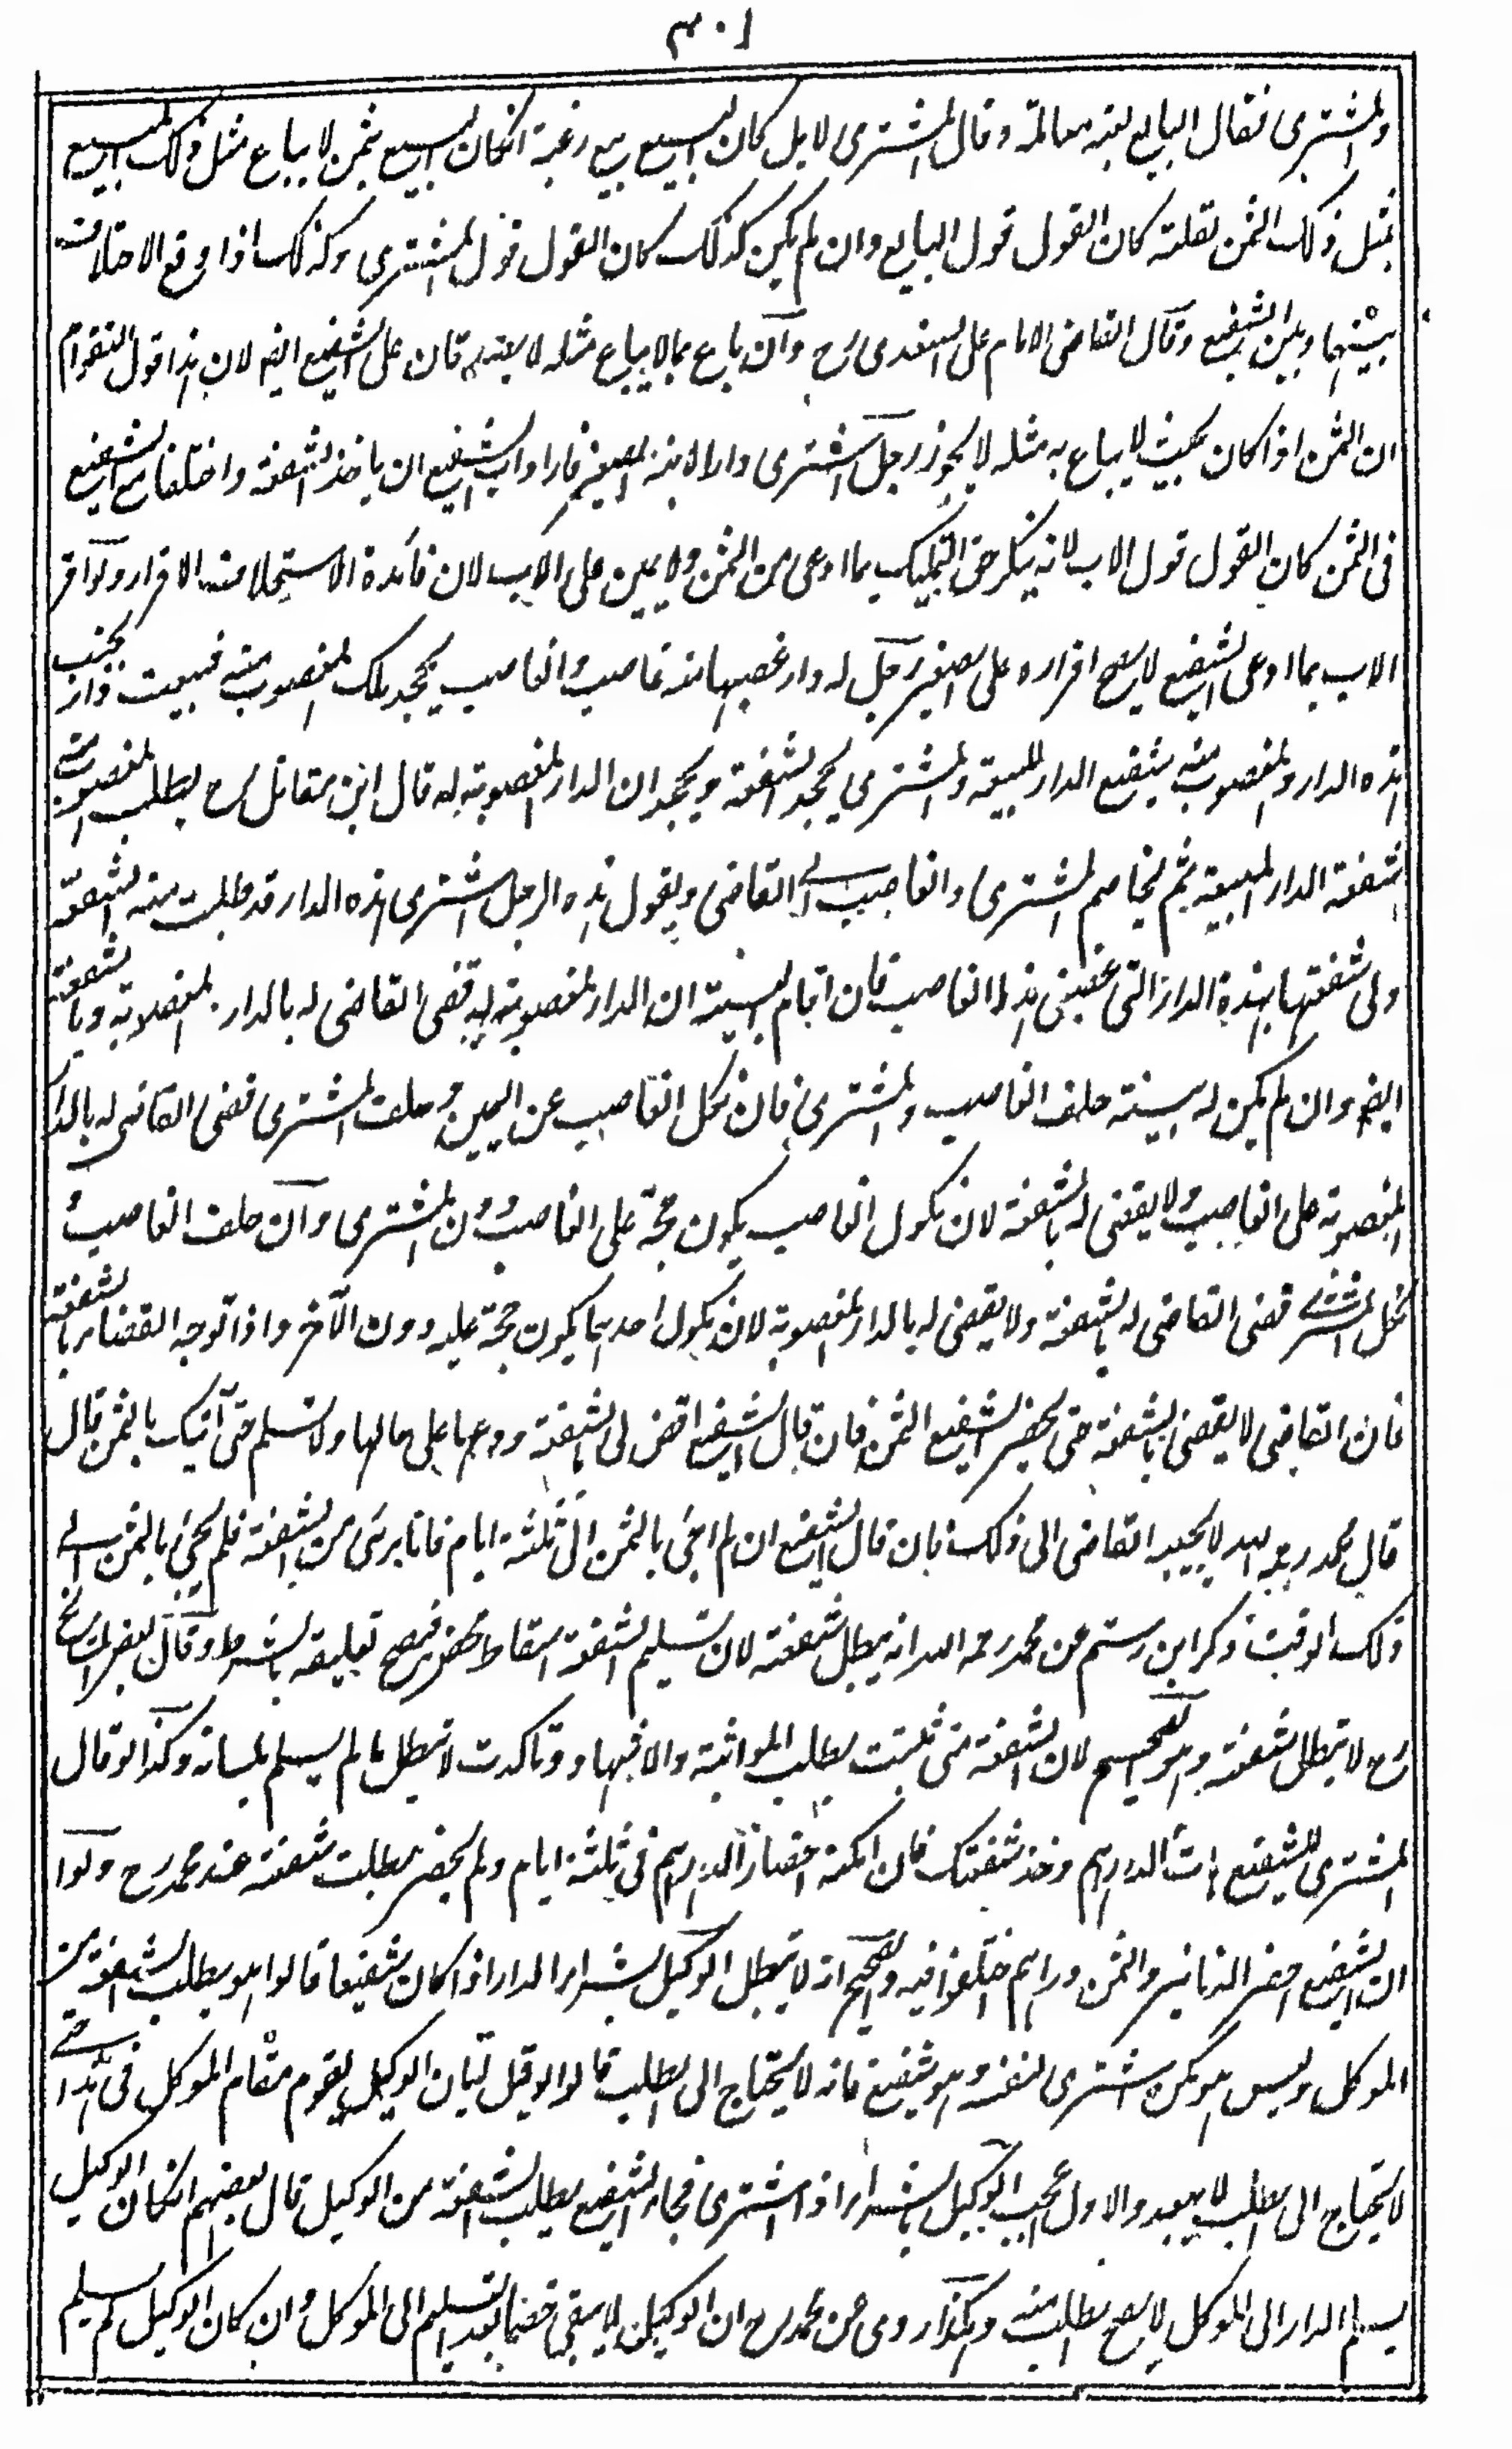 ٣٠١
والمشترى فقال البايع بعته معاملة وقال المشترى لا بل كان البيع بيع رغبة انكان البيع بثمن لا يباع مثل ذلك المبيع
بمثل ذلك الثمن لقلته كان القول قول البايع وان لم يكن كذلك كان القول قول المشترى وكذلك اذا وقع الاختلاف
بينهما وبين الشفيع وقال القاضى الامام على السغدى رح وان باع بما لا يباع مثله لا يعتبر قان على الشفيع ايضا لان هذا قول القوام
ان الثمن اذا كان بحيث لا يباع به مثله لا يجوز رجل اشترى دارا لابنه الصغير فاراد اب الشفيع ان ياخذ بالشفعة واختلفا مع الشفيع
فى الثمن كان القول قول الاب لانه ينكر حق التمليك بما ادعى من الثمن ولا يمين على الاب لان فائدة الاستحلاف الاقرار ولو اقر
الاب بما ادعى الشفيع لا يصح اقراره على الصغير رجل له دار غصبها منه غاصب والغاصب يجحد ملك المغصوب منه فبيعت دار بجنب
هذه الدار والمغصوب منه شفيع الدار المبيعة والمشترى يجحد الشفعة ويجحد ان الدار المغصوبة له قال ابن مقاتل رح يطلب المغصوب منه
شفعة الدار المبيعة ثم يخاصم المشترى والغاصب الى القاضى ويقول هذه الرجل اشترى هذه الدار قد طلبت منه الشفعة
ولى شفعتها بهذه الدار التى غصبنى هذا الغاصب فان اقام البينة ان الدار المغصوبة له قضى القاضى له بالدار المغصوبة وبالشفعة
ايضا وان لم يكن له بينة حلف الغاصب والمشترى فان نكل الغاصب عن اليمين وحلف المشترى قضى القاضى له بالدار
المغصوبة على الغاصب ولا يقضى له بالشفعة لان نكول الغاصب يكون حجة على الغاصب دون المشترى وان حلف الغاصب و
نكل المشترى قضى القاضى له بالشفعة ولا يقضى له بالدار المغصوبة لان نكول احدهما يكون حجة عليه دون الآخر واذا توجه القضاء بالشفعة
فان القاضى لا يقضى بالشفعة حتى يحضر الشفيع الثمن فان قال الشفيع اقض لى بالشفعة ودعها على حالها ولا تسلم حتى آتيك بالثمن قال
قال محمد رحمه الله لا يجيبه القاضى الى ذلك فان قال الشفيع ان لم اجئ بالثمن الى ثلثة ايام فانا برئ من الشفعة فلم يجئ بالثمن الى
ذلك الوقت ذكر ابن رستم عن محمد رحمه الله انه يبطل شفعته لان تسليم الشفعة اسقاط محض فيصح تعليقه بالشرط وقال بعض المشايخ
رح لا تبطل شفعته وهو الصحيح لان الشفعة متى ثبتت بطلب المواثبة والاشهاد وتاكدت لا تبطل ما لم يسلم بلسانه وكذا لو قال
المشترى للشفيع هات الدراهم وخذ شفعتك فان امكنه احضار الدراهم فى ثلثة ايام ولم يحضر بطلت شفعته عند محمد رح ولو ا
ان الشفيع احضر الدنانير والثمن دراهم اختلفوا فيه والصحيح انه لا تبطل الوكيل بشراء الدار اذا كان شفيعا قالوا هو يطلب الشفعة من
الموكل وليس هو كمن اشترى لنفسه وهو شفيع فانه لا يحتاج الى الطلب قالوا لو قيل بان الوكيل يقوم مقام الموكل فى هذا حتى
لا يحتاج الى الطلب لا يبعد والاول اعجب الوكيل بالشراء اذا اشترى فجاء الشفيع يطلب الشفعة من الوكيل قال بعضهم انكان الوكيل
يسلم الدار الى الموكل لا يصح الطلب منه وهكذا روى عن محمد رح ان الوكيل لا يبقى خصما بعد التسليم الى الموكل وان كان الوكيل لم يسلم